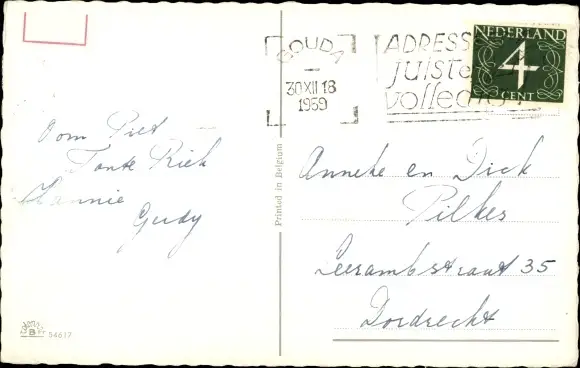 GOUDA
30 XII 18
1959
ADRESS
juiste
volledig
NEDERLAND
4
CENT
Oom Piet
Tante Riek
Hannie
Gerdy
Printed in Belgium
Anneke en Dick
Pilkes
Leerambstraat 35
Dordrecht
54617